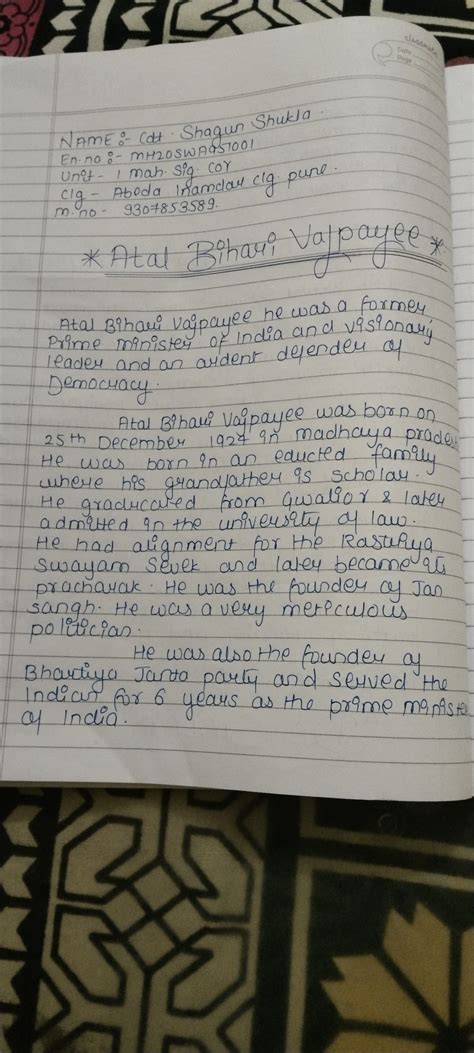 classmate
Date
Page
NAME :- Cdt. Shagun Shukla.
En. no :- MH20SWA951001
Unit - 1 mah. Sig. Coy
Clg - Abeda Inamdar clg pune.
m. no - 9307853589.
* Atal Bihari Vajpayee *
Atal Bihari Vajpayee he was a former
Prime minister of India and visionary
leader and an ardent defender of
Democracy.
Atal Bihari Vajpayee was born on
25th December 1924 in madhaya prades
He was born in an educted family
where his grandfather is scholar.
He graducated from Gwalior & later
admitted in the university of law.
He had alignment for the Rastriya
Swayam Sevek and later became its
prachayak. He was the founder of Jan
sangh. He was a very meticulous
politician.
He was also the founder of
Bhartiya Janta party and served the
Indian for 6 years as the prime ministe
of India.